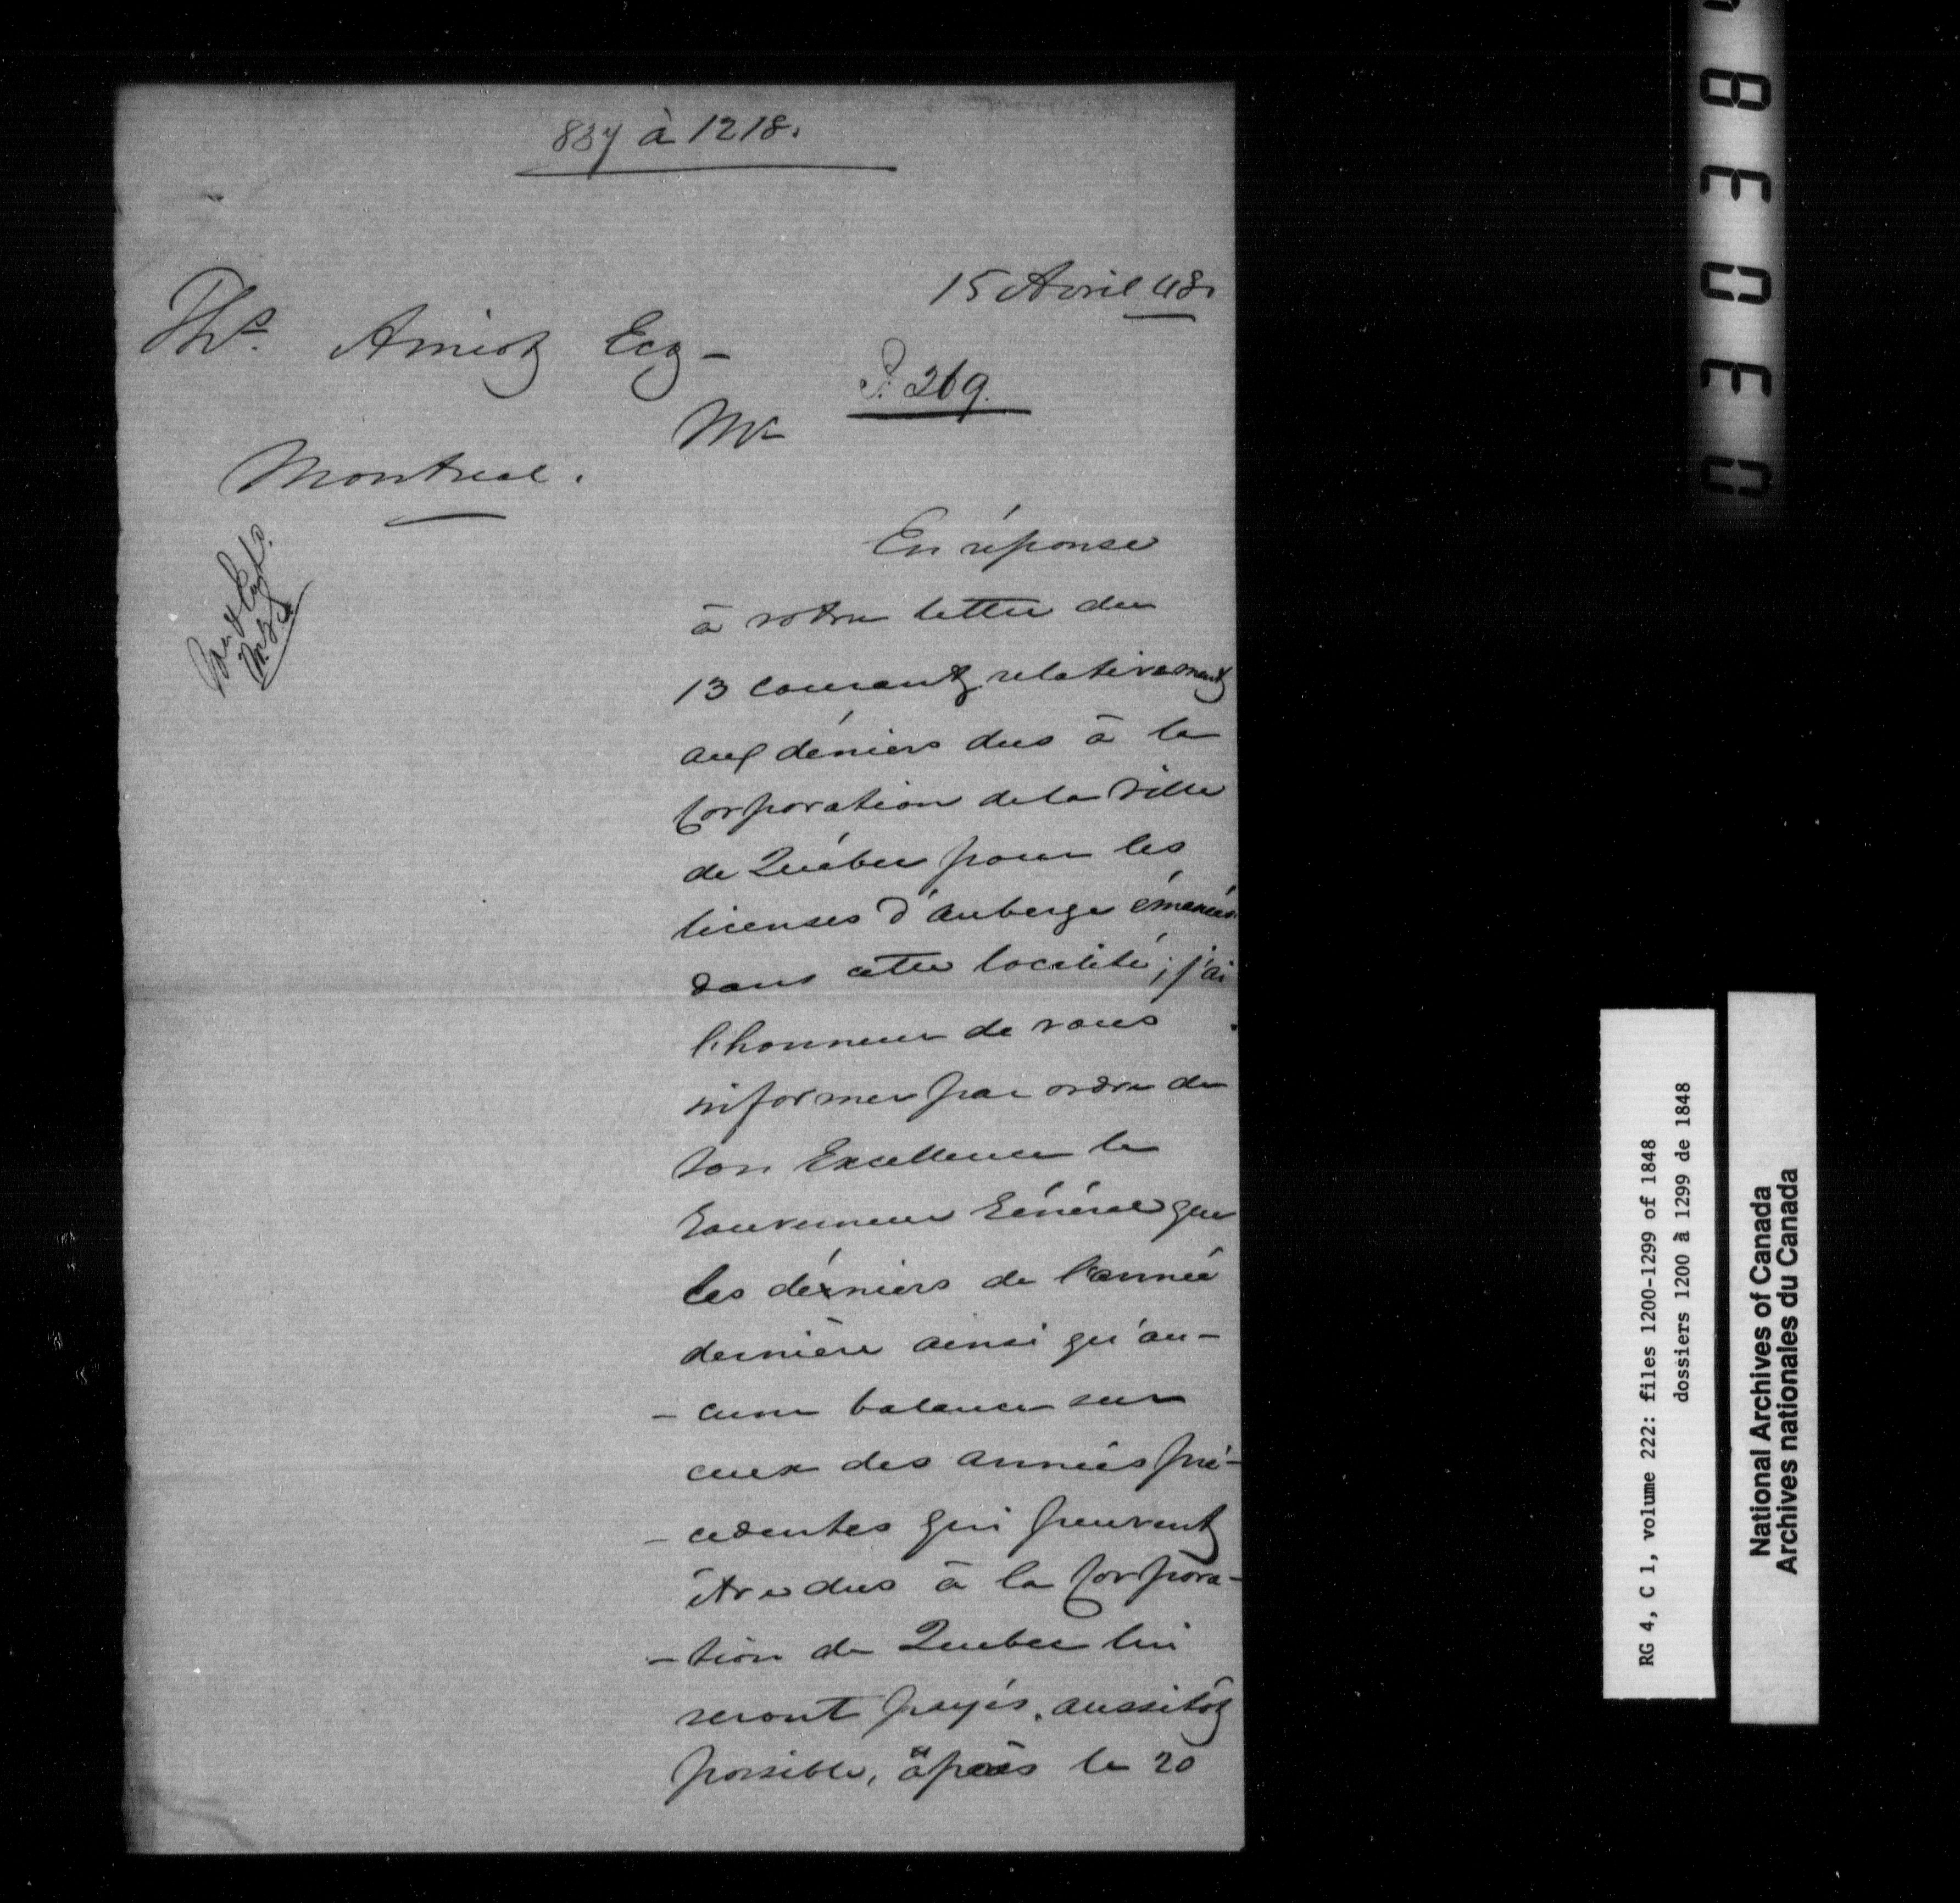 837 à 1218.
15 Avril 48.
Ths. Amiot Ecr
P. 269.
Mr
Montreal.
En réponse
à votre lettre du
13 courant relativement
aux déniers dus à la
Corporation de la Ville
de Québec pour les
licenses d'auberge émanées
dans cette localité; j'ai
l'honneur de vous
informer par ordre de
Son Excellence le
Gouverneur Général que
les déniers de l'année
dernière ainsi qu'au-
-cune balance sur
ceux des années pré-
-cedentes qui peuvent
être dus à la Corpora-
-tion de Quebec lui
seront payés, aussitôt
possible, après le 20
03038
RG 4, C 1, volume 222: files 1200-1299 of 1848
dossiers 1200 à 1299 de 1848
National Archives of Canada
Archives nationales du Canada